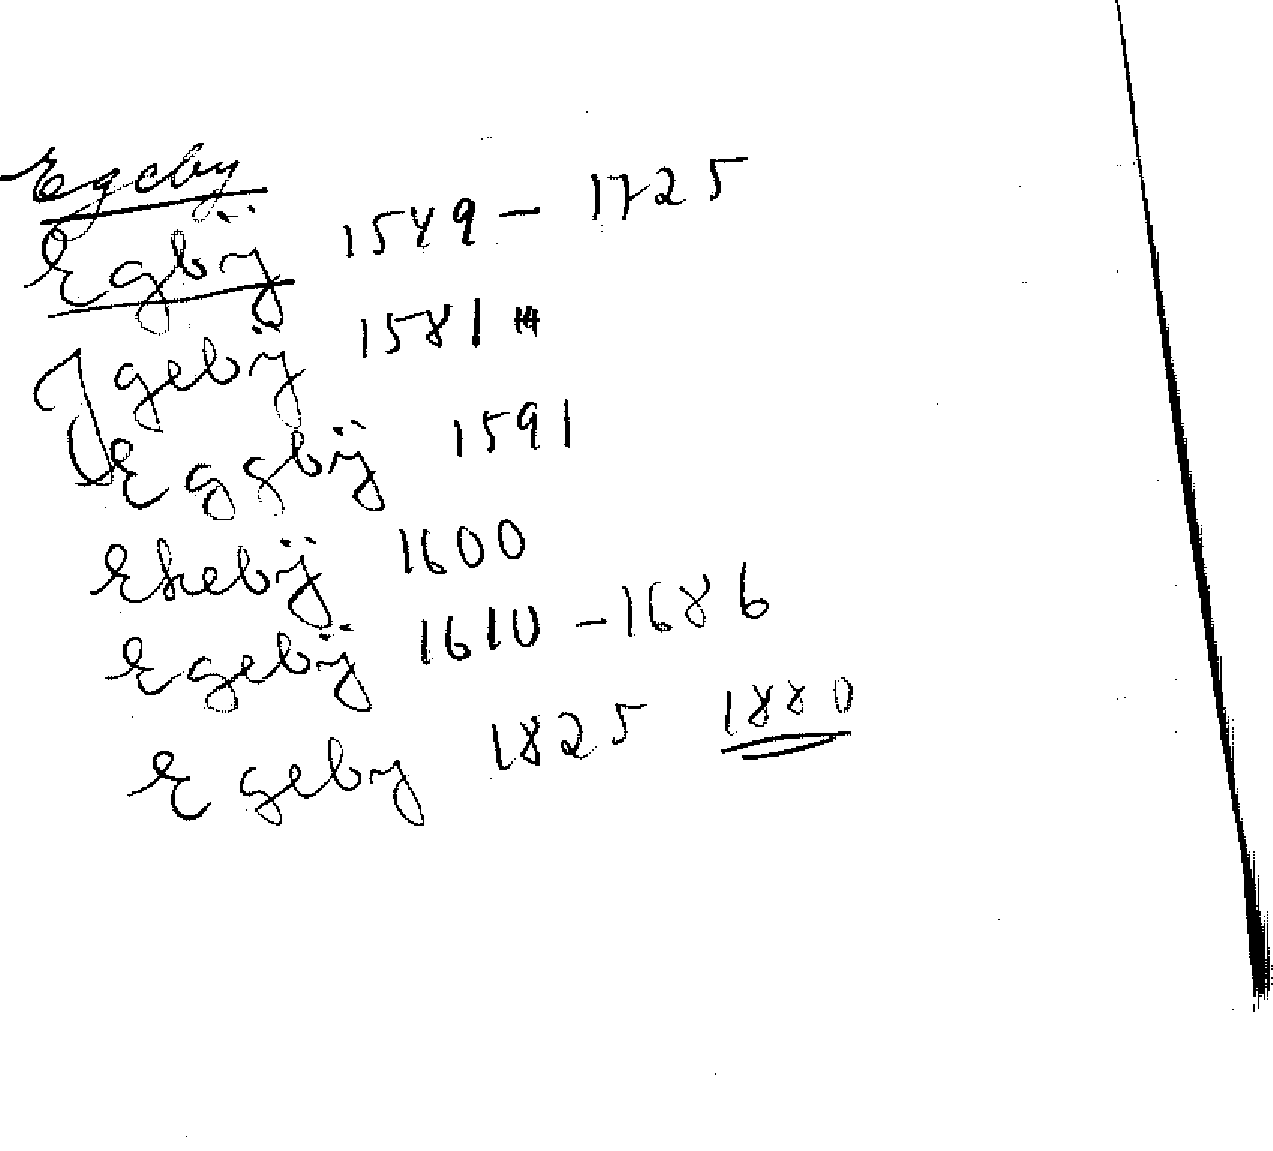 Egeby
Egbÿ 1549 - 1725
Jgebÿ 1581
Eggbÿ 1591
Ekebÿ 1600
Egebÿ 1610 - 1686
Egeby 1825 1880